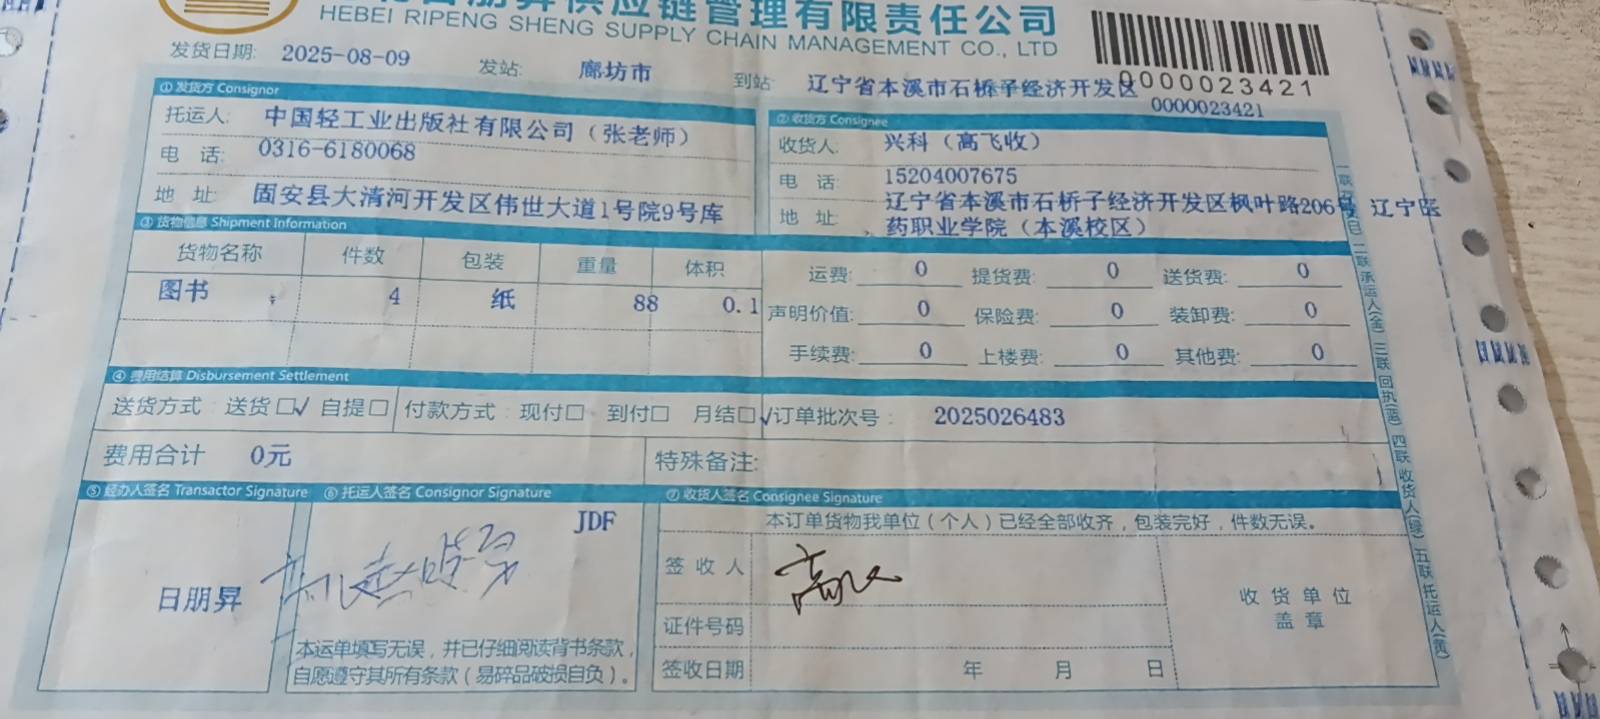 日朋昇供应链管理有限责任公司
HEBEI RIPENG SHENG SUPPLY CHAIN MANAGEMENT CO., LTD
发货日期: 2025-08-09 发站: 廊坊市 到站: 辽宁省本溪市石桥子经济开发区
0000023421
0000023421
①发货方 Consignor
托运人: 中国轻工业出版社有限公司（张老师）
电 话: 0316-6180068
地 址: 固安县大清河开发区伟世大道1号院9号库
②收货方 Consignee
收货人: 兴科（高飞收）
电 话: 15204007675
地 址: 辽宁省本溪市石桥子经济开发区枫叶路206号 辽宁医
药职业学院（本溪校区）
③货物信息 Shipment Information
货物名称 件数 包装 重量 体积
图书 4 纸 88 0.1
运费: 0 提货费: 0 送货费: 0
声明价值: 0 保险费: 0 装卸费: 0
手续费: 0 上楼费: 0 其他费: 0
④费用结算 Disbursement Settlement
送货方式: 送货□√ 自提□ 付款方式: 现付□ 到付□ 月结□√ 订单批次号: 2025026483
费用合计 0元 特殊备注:
⑤经办人签名 Transactor Signature ⑥托运人签名 Consignor Signature ⑦收货人签名 Consignee Signature
日朋昇
JDF
本运单填写无误，并已仔细阅读背书条款，
自愿遵守其所有条款（易碎品破损自负）。
本订单货物我单位（个人）已经全部收齐，包装完好，件数无误。
签 收 人 高飞
证件号码
签收日期 年 月 日
收 货 单 位
盖 章
二联承运人(金) 三联回执(蓝) 四联收货人(绿) 五联托运人(黄)